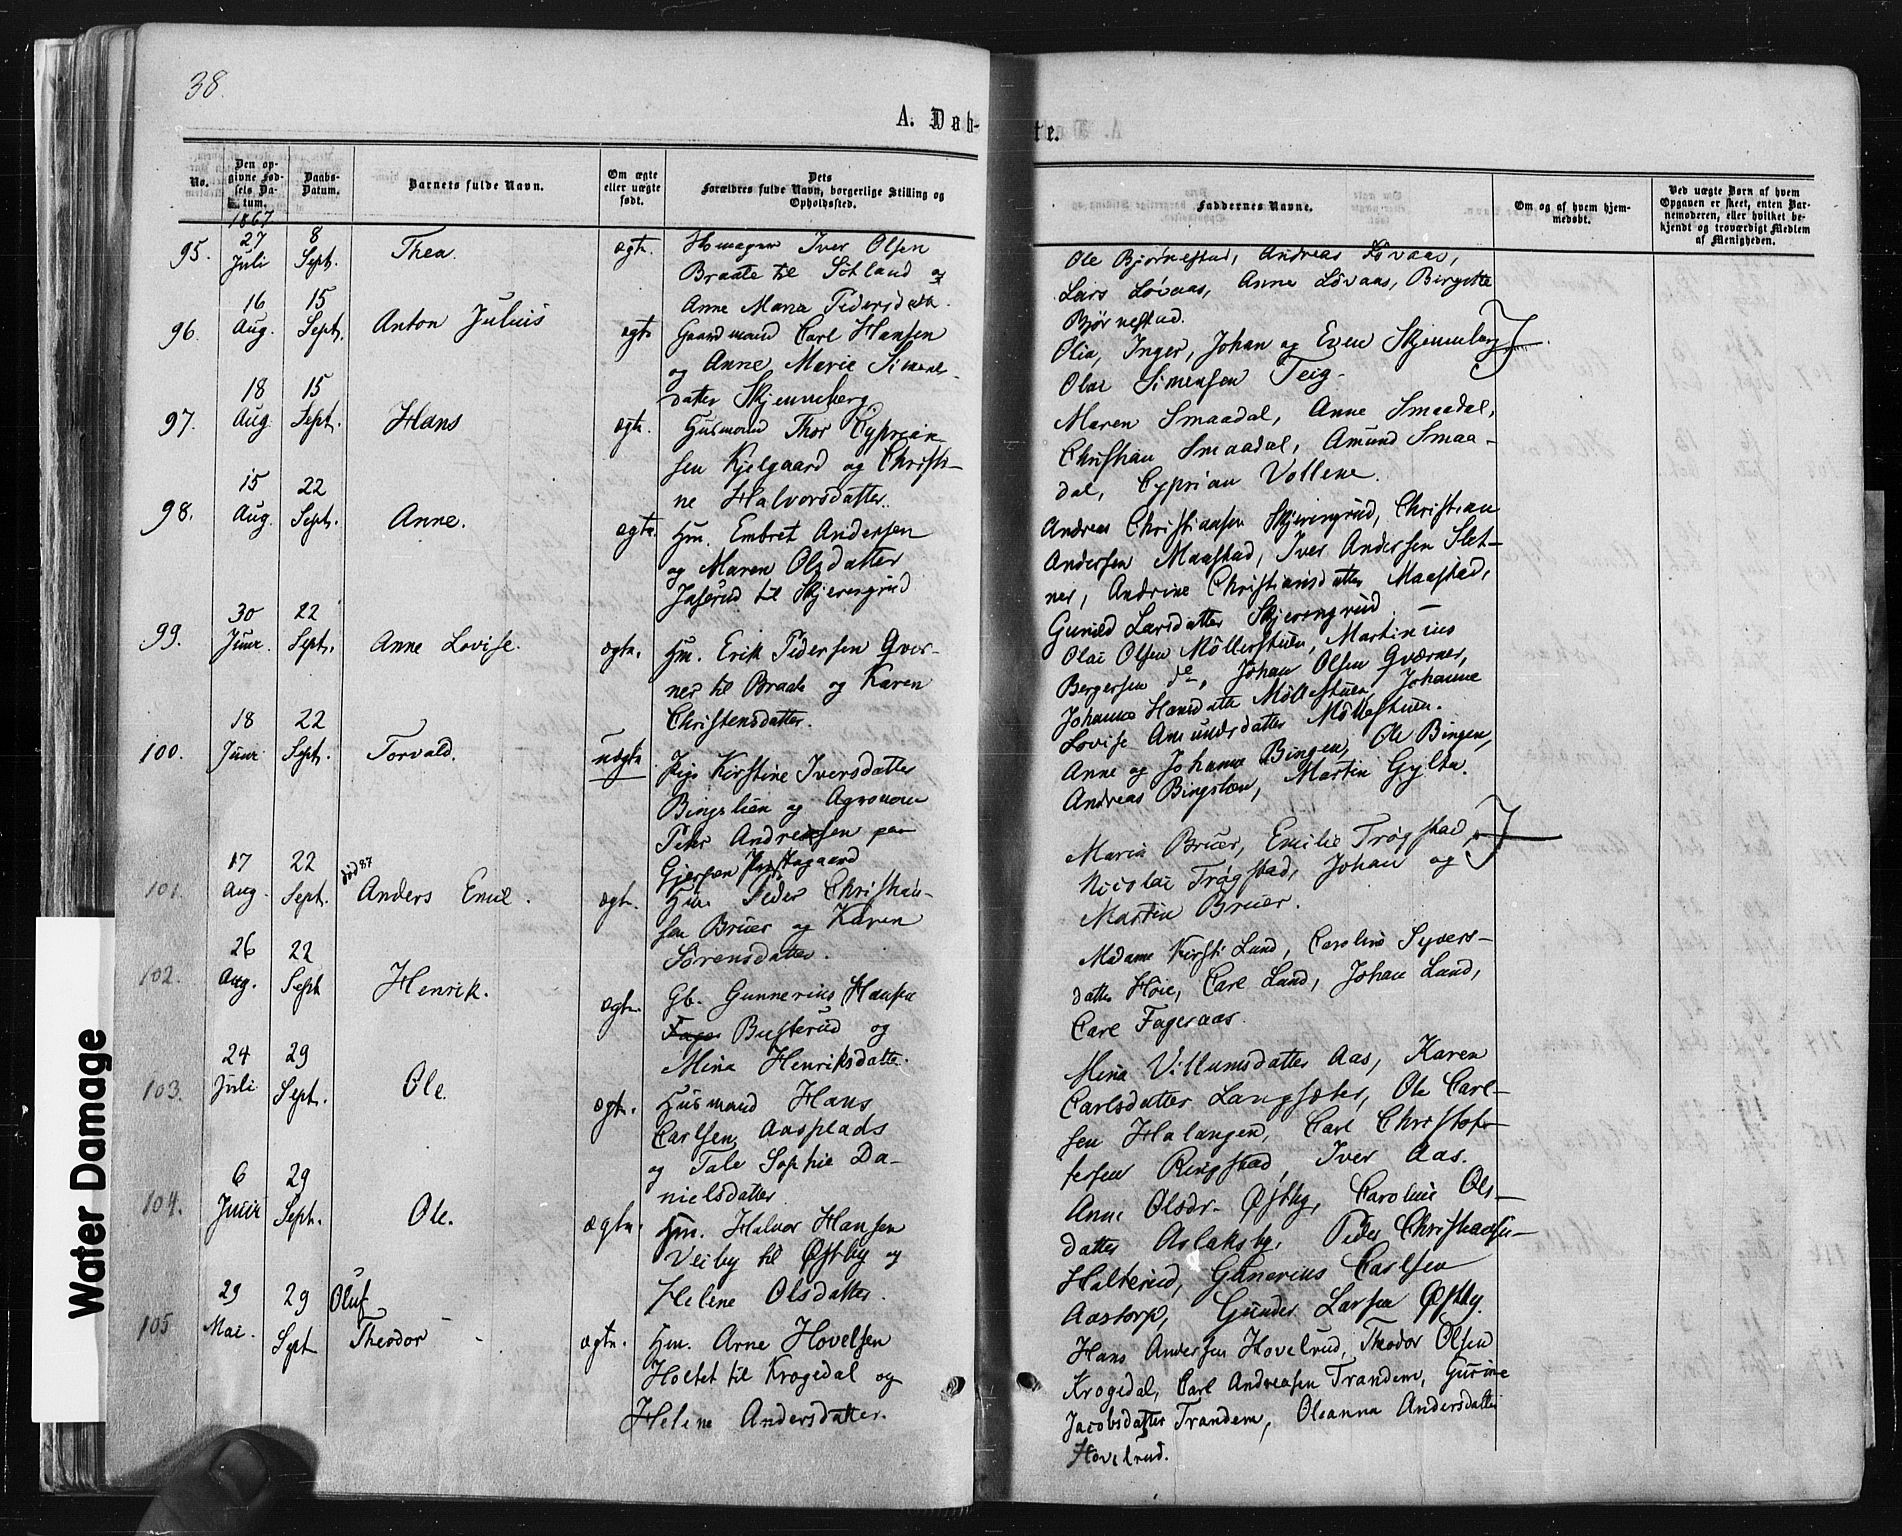 38.
A. Døb-
te.
No.
Den op-
givne Fød-
sels Da-
tum.
Daabs-
Datum.
Barnets fulde Navn.
Om ægte
eller uægte
født.
Dets
Forældres fulde Navn, borgerlige Stilling og
Opholdssted.
Faddernes Navne.
Om og af hvem hjem-
medøbt.
Ved uægte Børn af hvem
Opgaven er skeet, enten Bar-
nemoderen, eller hvilket be-
kjendt og troværdigt Medlem
af Menigheden.
1867
95.
27
Juli
8
Sept.
Thea.
ægt.
Iver Olsen
Braate til Sotland og
Anne Maria Pedersdatt.
Ole Bjørnestad, Andreas Løvaas,
Lars Løvaas, Anne Løvaas, Birgitte
Bjørnestad.
96.
16
Aug.
15
Sept.
Anton Julius
ægt.
Gaardmand Carl Hansen
og Anne Marie Simens-
datter Skjenneberg
Olia, Inger, Johan og Even Skjenneberg
Olai Simensen Teig.
97.
18
Aug
15
Sept.
Hans
ægt.
Husmand Thor Cyprian-
sen Kjelgaard og Christi-
ne Halvorsdatter.
Maren Smaadal, Anne Smaadal,
Christian Smaadal, Amund Smaa-
dal, Cyprian Vollene.
98.
15
Aug.
22
Sept.
Anne.
ægte.
Hm. Embret Andersen
og Maren Olsdatter
Jaserud til Skjerengrud
Andreas Christiansen Skjerengrud, Christian
Andersen Maastad, Iver Andersen Slet-
ner, Andrine Christiansdatter Maastad,
Gunild Larsdatter Skjerengrud.
99.
30
Juni.
22
Sept.
Anne Lovise.
ægte.
Hm. Erik Pedersen Qver-
ner til Braate og Karen
Christensdatter.
Olai Olsen Møllerstuen, Martinius
Bergersen do, Johan Olsen Qværner,
Johanne Hansdatter Møllestuen, Johanne
Lovise Amundsdatter Møllestuen.
100.
18
Juni
22
Sept.
Torvald.
uægte
Pige Kirstine Iversdatter
Bingslien og Agronom
Peter Andresen paa
Gjersen Præstegaard
Anne og Johanne Bingen, Ole Bingen,
Andreas Bingslien, Martin Gylta.
101.
17
Aug.
22
Sept.
død 87
Anders Emil.
ægt.
Hm. Peder Christian-
sen Bruer og Karen
Sørensdatter.
Maria Bruer, Emilie Trøgstad,
Nicolai Trøgstad, Johan og
Martin Bruer.
102.
26
Aug.
22
Sept
Henrik.
ægte.
Gb. Gunnerius Hansen
Busterud og
Mina Henriksdatter.
Madame Kirsti Lund, Caroline Syvers-
datter Høie, Carl Lund, Johan Lund,
Carl Fageraas.
103.
24
Juli
29
Sept.
Ole.
ægte.
Husmand Hans
Carlsen Aasplads
og Tale Sophie Da-
nielsdatter
Mina Villumsdatter Aas, Karen
Carlsdatter Langsæter, Ole Carl-
sen Halangen, Carl Christof-
fersen Ringstad, Iver Aas.
104.
6
Juni
29
Sept.
Ole.
ægte.
Hm. Halvor Hansen
Veiby til Østby og
Helene Olsdatter.
Anne Olsdr. Østby, Caroline Ols-
datter Aslaksby, Peder Christiansen
Halterud, Gunerius Carlsen
Aastorp, Gunder Larsen Østby.
105
29
Mai.
29
Sept
Oluf
Theodor
ægte.
Hm. Arne Hovelsen
Holtet til Krogedal og
Helene Andersdatter.
Hans Andersen Hovelrud, Theodor Olsen
Krogedal, Carl Andreasen Trandem, Gurine
Jacobsdatter Trandem, Oleanna Andersdatter
Hovelrud.
Water Damage